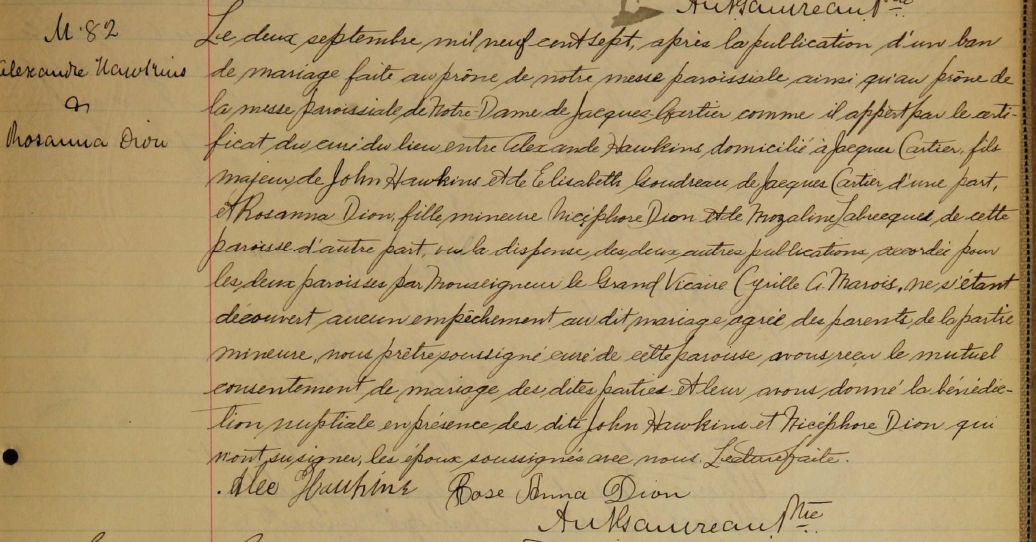 M. 82
Alexandre Hawkins
&
Rosanna Dion
Le deux septembre mil neuf cent sept, après la publication d'un ban
de mariage faite au prône de notre messe paroissiale ainsi qu'au prône de
la messe paroissiale de Notre-Dame de Jacques-Cartier comme il appert par le certi-
ficat du curé du lieu entre Alexande Hawkins domicilié à Jacques Cartier, fils
majeur, de John Hawkins et de Elisabeth Goudreau de Jacques Cartier d'une part,
et Rosanna Dion, fille mineure Nicéphore Dion et de Mozaline Labrecques de cette
paroisse d'autre part, vu la dispense des deux autres publications accordée pour
les deux paroisses par Monseigneur le Grand Vicaire Cyrille A. Marois, ne s'étant
découvert aucun empêchement au dit mariage, agrée des parents, de la partie
mineure, nous prêtre soussigné curé de cette paroisse avons reçu le mutuel
consentement de mariage des dites parties et leur avons donné la bénédic-
tion nuptiale en présence des dits John Hawkins et Nicéphore Dion qui
n'ont su signer, les époux soussignés avec nous. Lecture faite.
Alec Hawkins Rose Anna Dion
Ptre